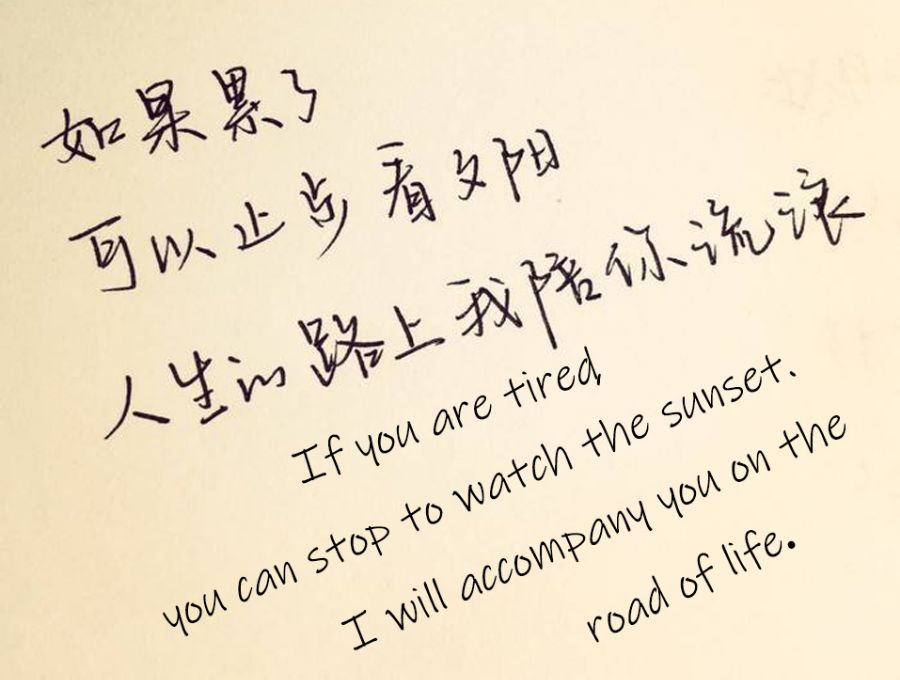 如果累了
可以止步看夕阳
人生的路上我陪你流浪
If you are tired,
you can stop to watch the sunset.
I will accompany you on the
road of life.